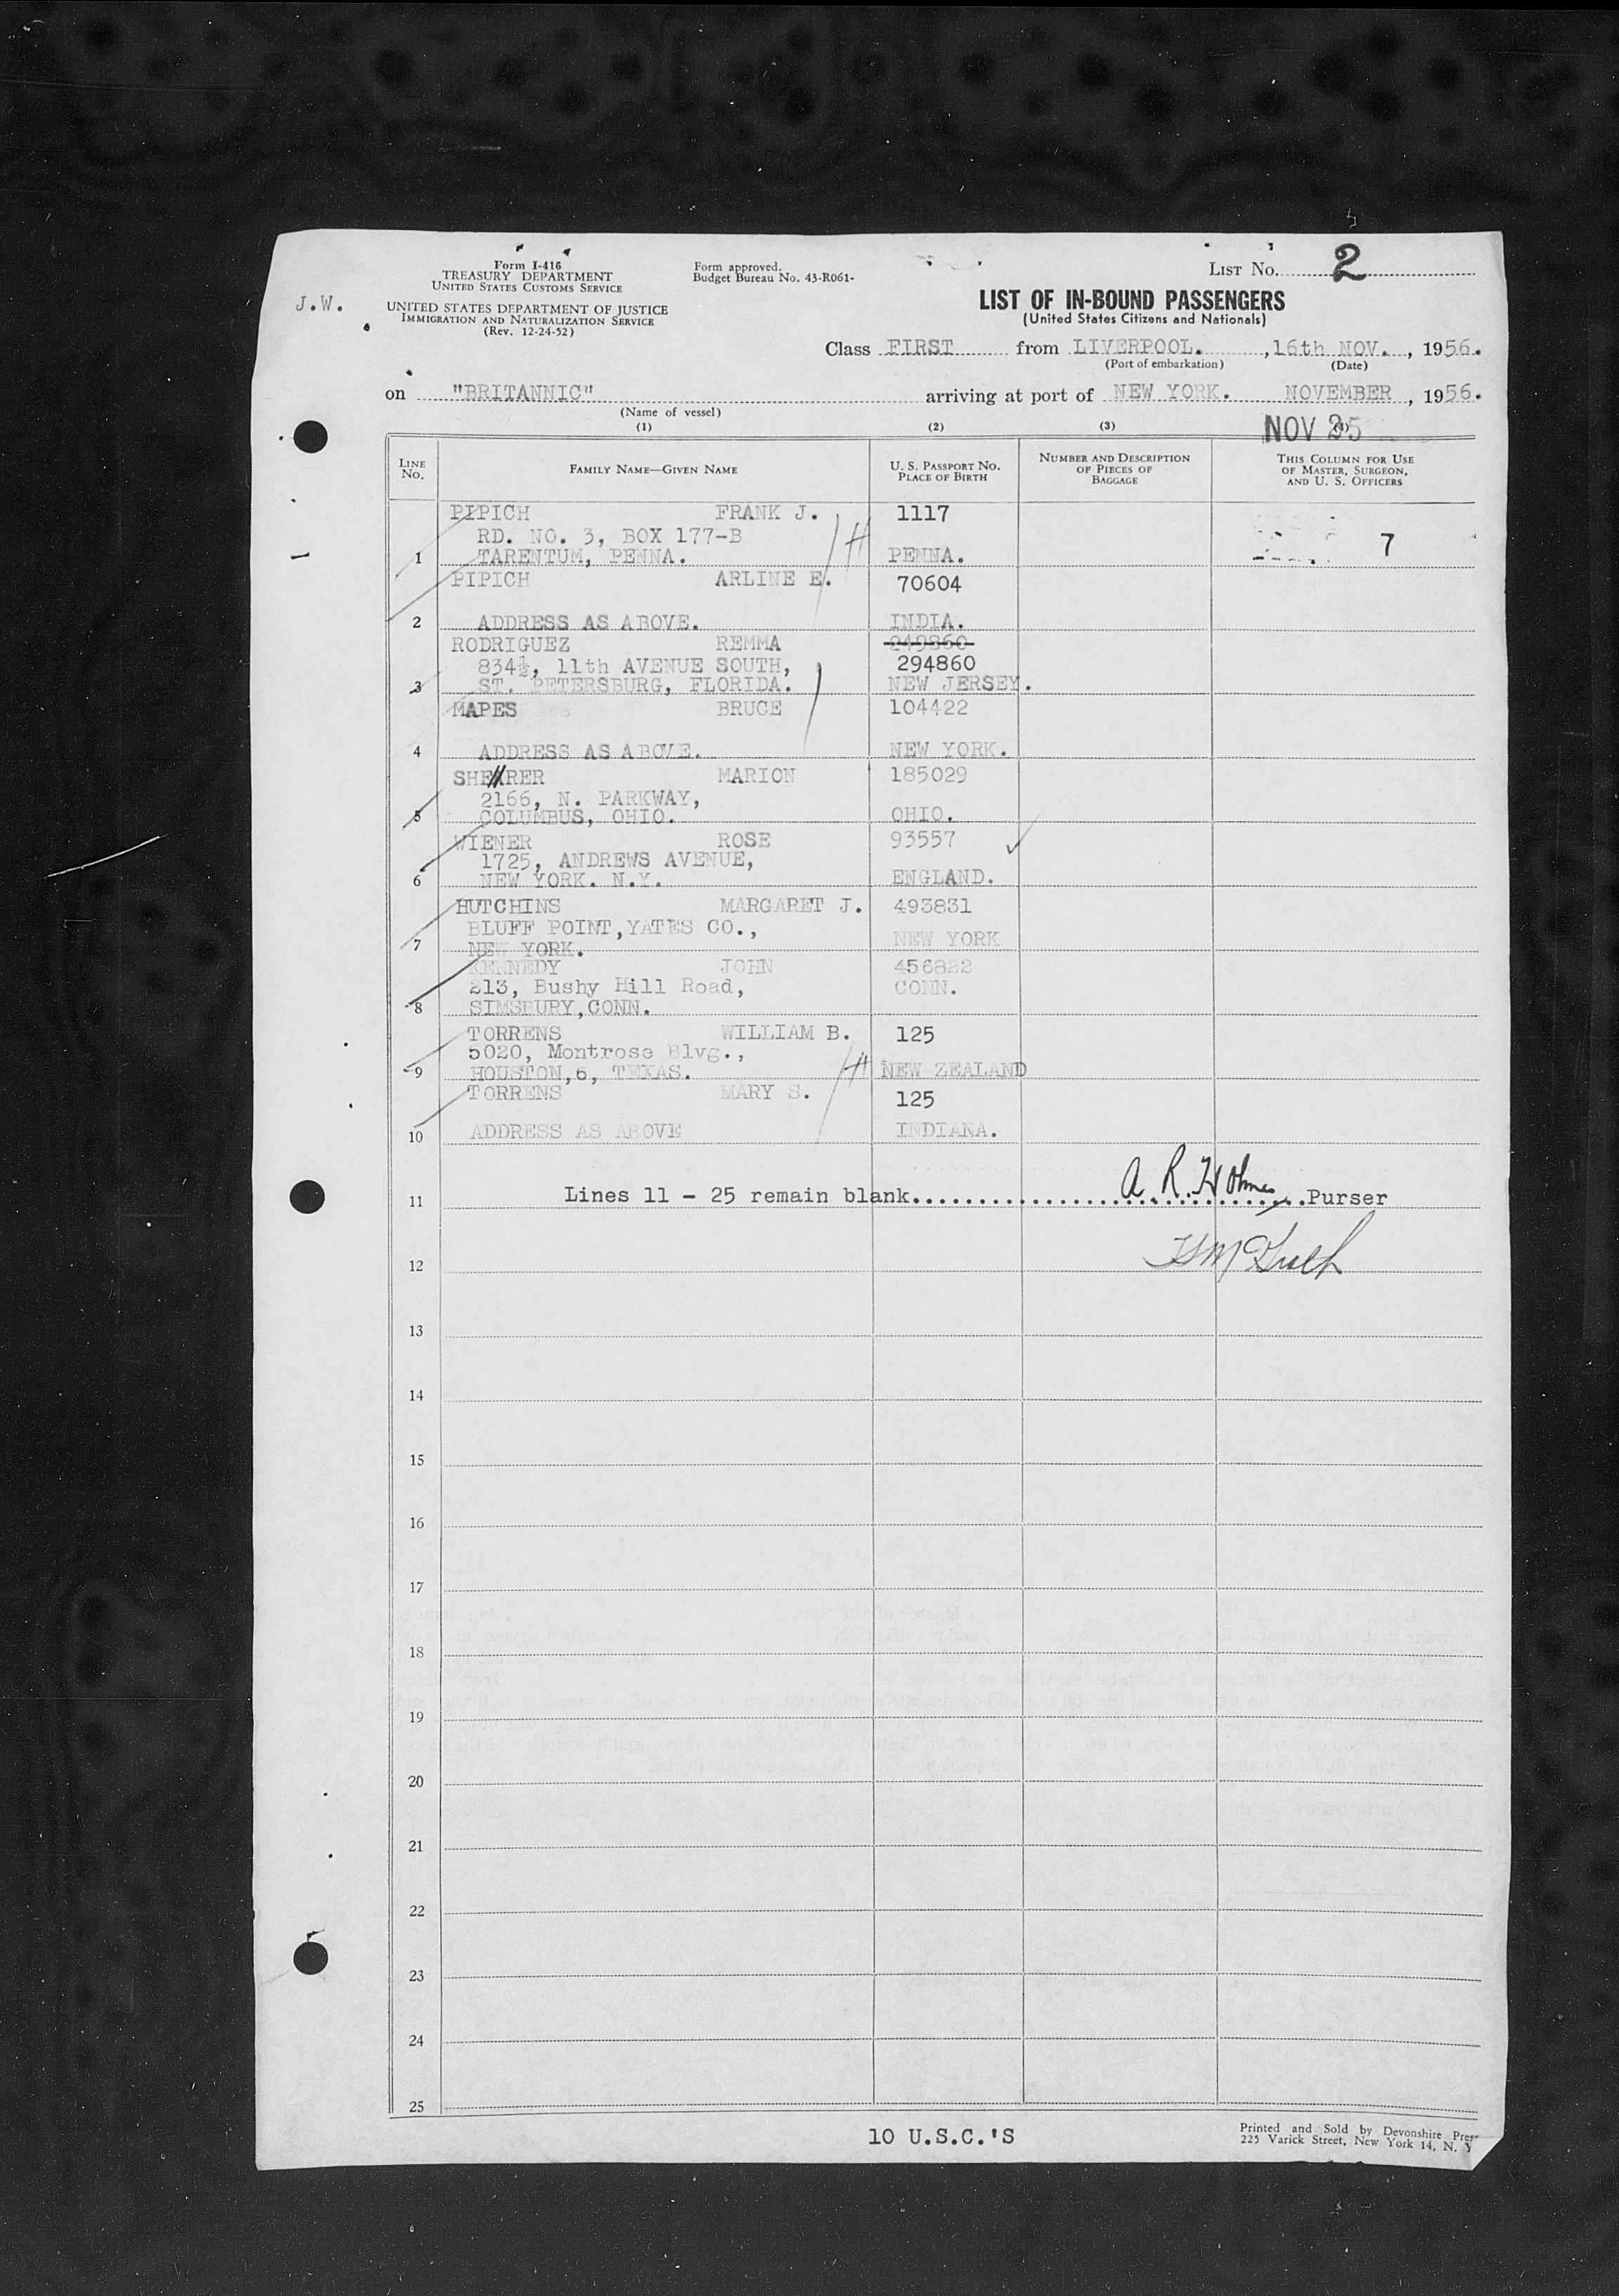 Form I-416
TREASURY DEPARTMENT
UNITED STATES CUSTOMS SERVICE
Form approved.
Budget Bureau No. 43-R061-
LIST No. 2
J.W.
UNITED STATES DEPARTMENT OF JUSTICE
IMMIGRATION AND NATURALIZATION SERVICE
(Rev. 12-24-52)
LIST OF IN-BOUND PASSENGERS
(United States Citizens and Nationals)
Class FIRST from LIVERPOOL. , 16th NOV. , 1956.
(Port of embarkation) (Date)
on "BRITANNIC" arriving at port of NEW YORK. NOVEMBER , 1956.
(Name of vessel)
NOV 25
(1) (2) (3) (4)
LINE No. FAMILY NAME—GIVEN NAME U. S. PASSPORT No. PLACE OF BIRTH NUMBER AND DESCRIPTION OF PIECES OF BAGGAGE THIS COLUMN FOR USE OF MASTER, SURGEON, AND U. S. OFFICERS
PIPICH FRANK J. 1117
RD. NO. 3, BOX 177-B 7
1 TARENTUM, PENNA. PENNA.
PIPICH ARLINE E. 70604
2 ADDRESS AS ABOVE. INDIA.
RODRIGUEZ REMMA 249860
834½, 11th AVENUE SOUTH, 294860
3 ST. PETERSBURG, FLORIDA. NEW JERSEY.
MAPES BRUCE 104422
4 ADDRESS AS ABOVE. NEW YORK.
SHEARER MARION 185029
2166, N. PARKWAY,
5 COLUMBUS, OHIO. OHIO.
WIENER ROSE 93557
1725, ANDREWS AVENUE,
6 NEW YORK. N.Y. ENGLAND.
HUTCHINS MARGARET J. 493831
BLUFF POINT,YATES CO.,
7 NEW YORK. NEW YORK
KENNEDY JOHN 456822
213, Bushy Hill Road, CONN.
8 SIMSBURY,CONN.
TORRENS WILLIAM B. 125
5020, Montrose Blvg.,
9 HOUSTON,6, TEXAS. NEW ZEALAND
TORRENS MARY S. 125
10 ADDRESS AS ABOVE INDIANA.
11 Lines 11 - 25 remain blank. A. R. Holmes Purser
12
13
14
15
16
17
18
19
20
21
22
23
24
25
10 U.S.C.'S
Printed and Sold by Devonshire Press
225 Varick Street, New York 14, N. Y